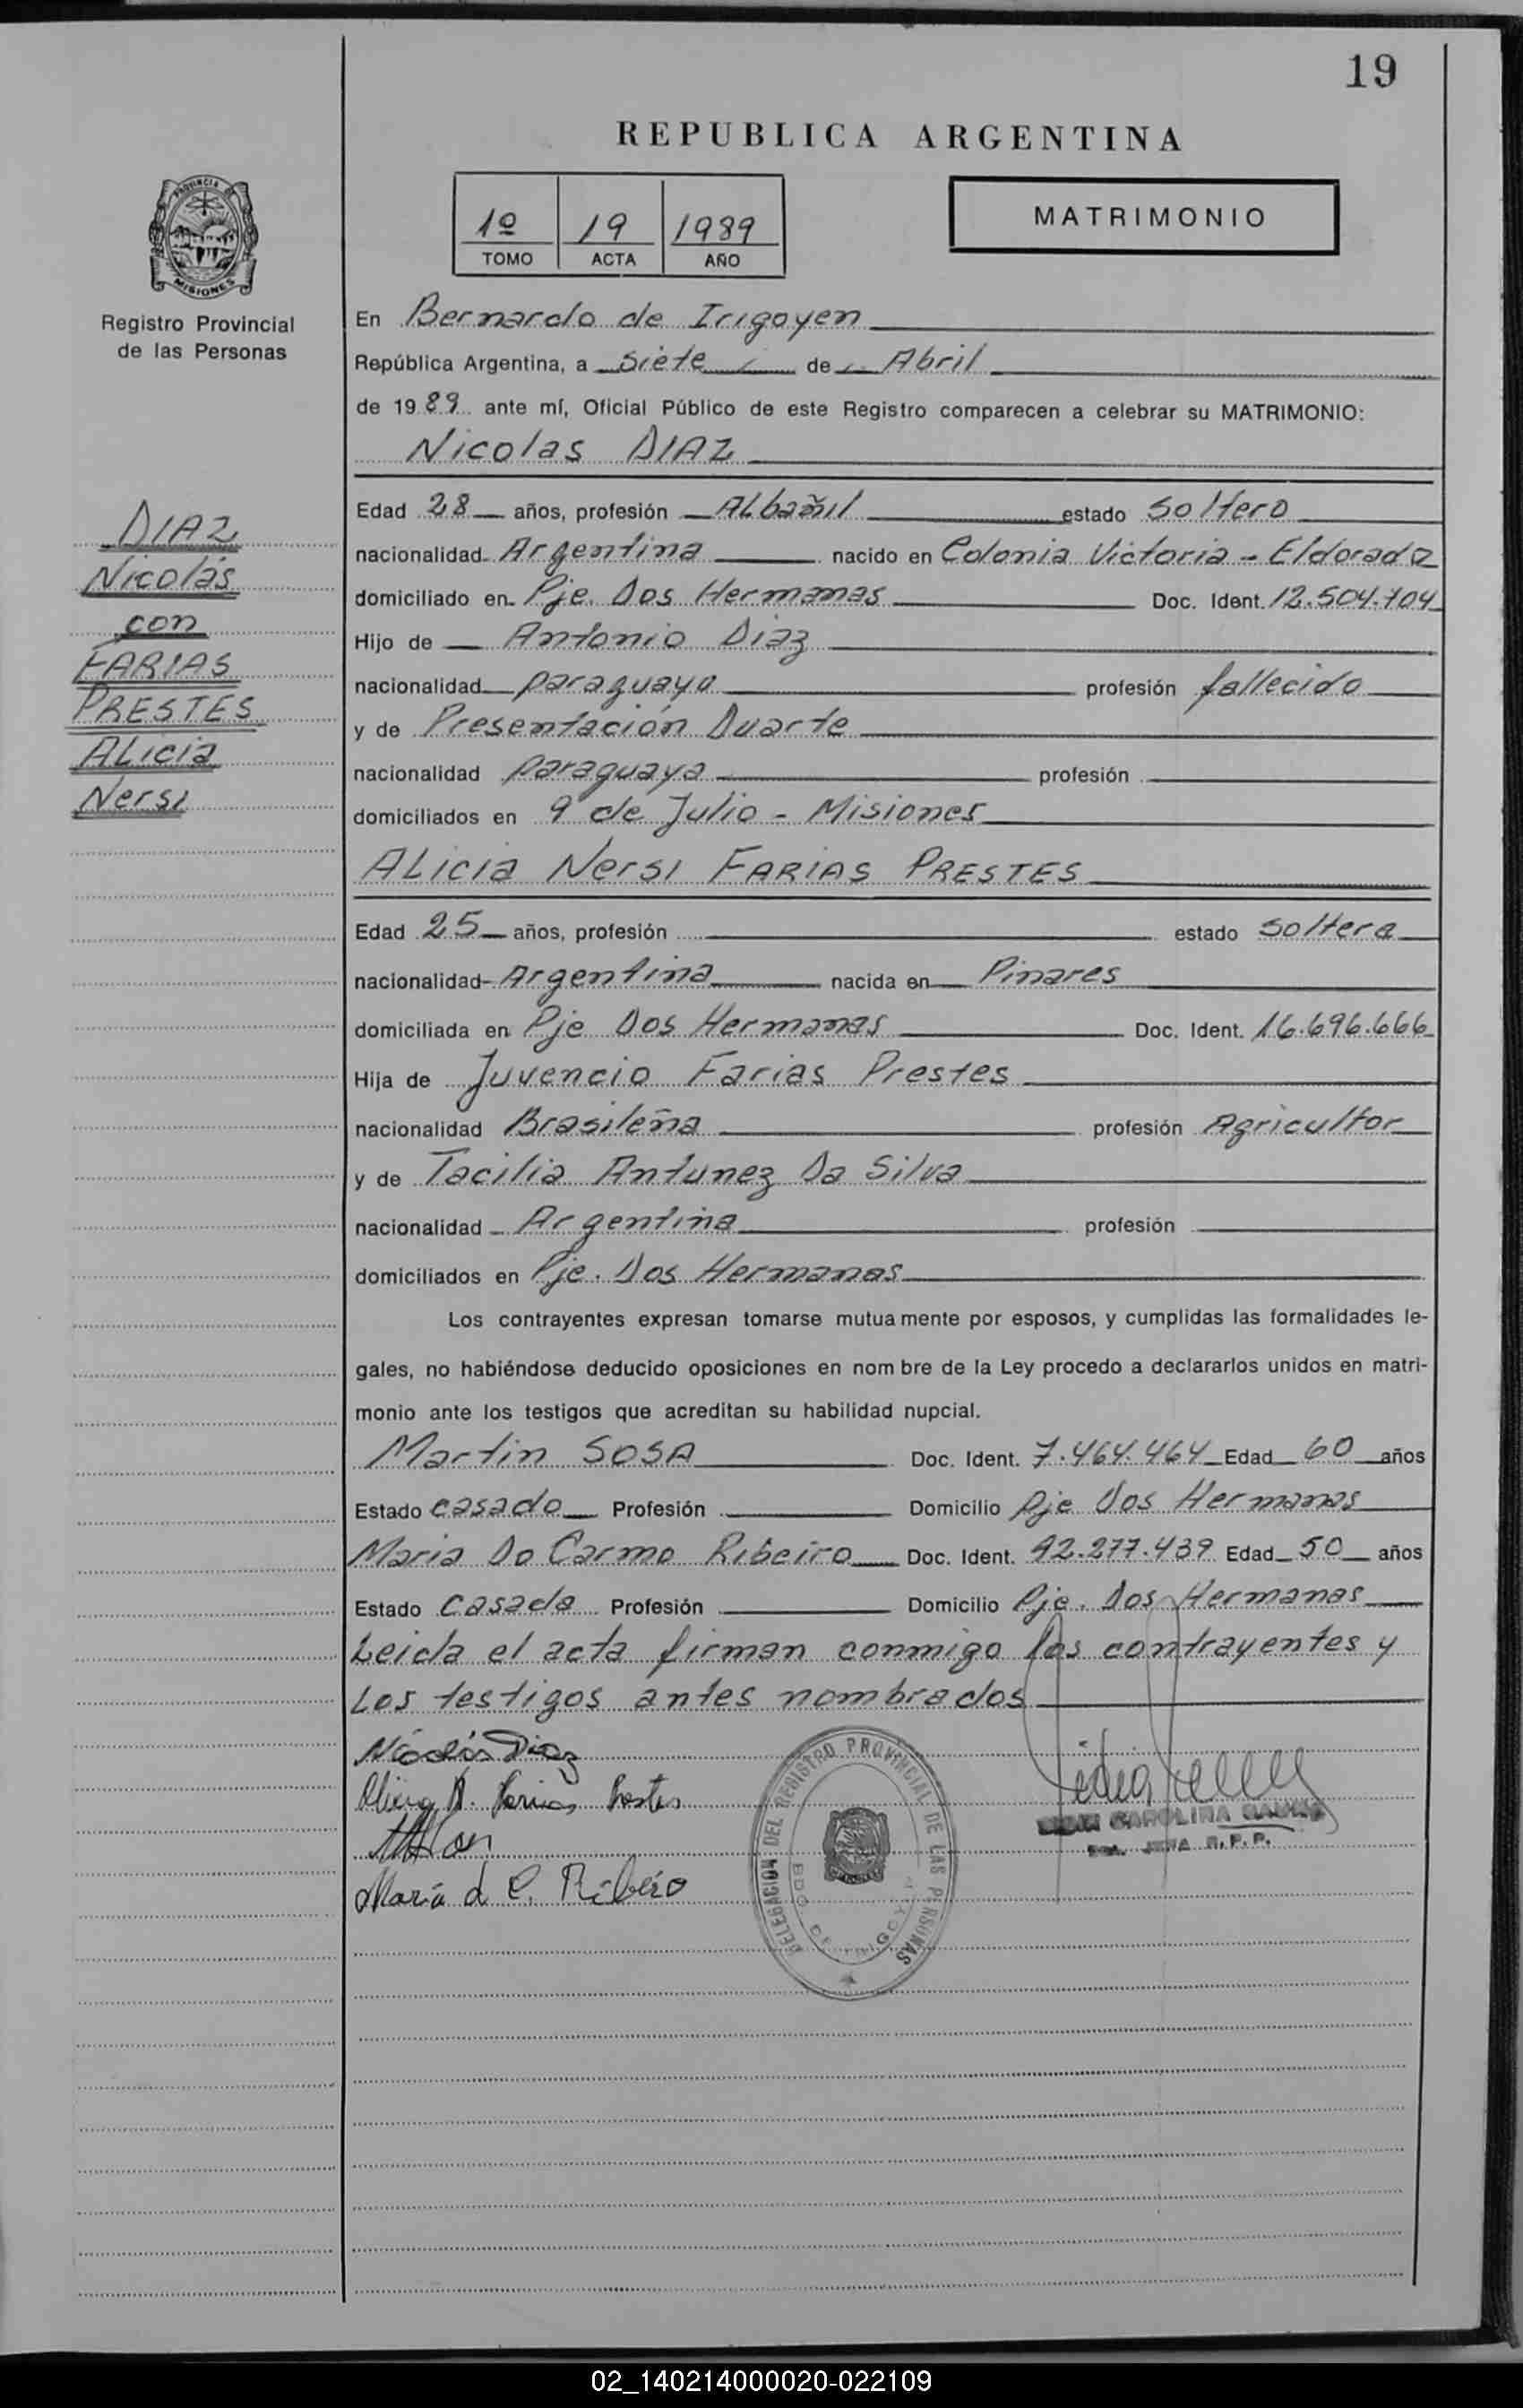 19
REPUBLICA ARGENTINA
1º 19 1989
TOMO ACTA AÑO
MATRIMONIO
PROVINCIA DE
MISIONES
Registro Provincial
de las Personas
DIAZ
Nicolás
con
FARIAS
PRESTES
ALicia
Nersi
En Bernardo de Irigoyen
República Argentina, a siete de Abril
de 1989 ante mí, Oficial Público de este Registro comparecen a celebrar su MATRIMONIO:
Nicolas DIAZ
Edad 28 años, profesión ALbañil estado soltero
nacionalidad Argentina nacido en Colonia Victoria - Eldorado
domiciliado en Pje. Dos Hermanas Doc. Ident. 12.504.104
Hijo de Antonio Diaz
nacionalidad paraguaya profesión fallecido
y de Presentación Duarte
nacionalidad paraguaya profesión
domiciliados en 9 de Julio - Misiones
ALicia Nersi FARIAS PRESTES
Edad 25 años, profesión estado soltera
nacionalidad Argentina nacida en Pinares
domiciliada en Pje Dos Hermanas Doc. Ident. 16.696.666
Hija de Juvencio Farias Prestes
nacionalidad Brasileña profesión Agricultor
y de Tacilia Antunez Da Silva
nacionalidad Argentina profesión
domiciliados en Pje. Dos Hermanas
Los contrayentes expresan tomarse mutuamente por esposos, y cumplidas las formalidades le-
gales, no habiéndose deducido oposiciones en nombre de la Ley procedo a declararlos unidos en matri-
monio ante los testigos que acreditan su habilidad nupcial.
Martin SOSA Doc. Ident. 7.464.464 Edad 60 años
Estado casado Profesión Domicilio Pje Dos Hermanas
Maria Do Carmo Ribeiro Doc. Ident. 92.277.439 Edad 50 años
Estado casada Profesión Domicilio Pje. Dos Hermanas
Leida el acta firman conmigo los contrayentes y
Los testigos antes nombrados
Nicolás Diaz
Alicia N. Farias Prestes
María d C. Ribeiro
DELEGACION DEL REGISTRO PROVINCIAL DE LAS PERSONAS
BDO. DE IRIGOYEN
CAROLINA
JEFA R.P.P.
02_140214000020-022109